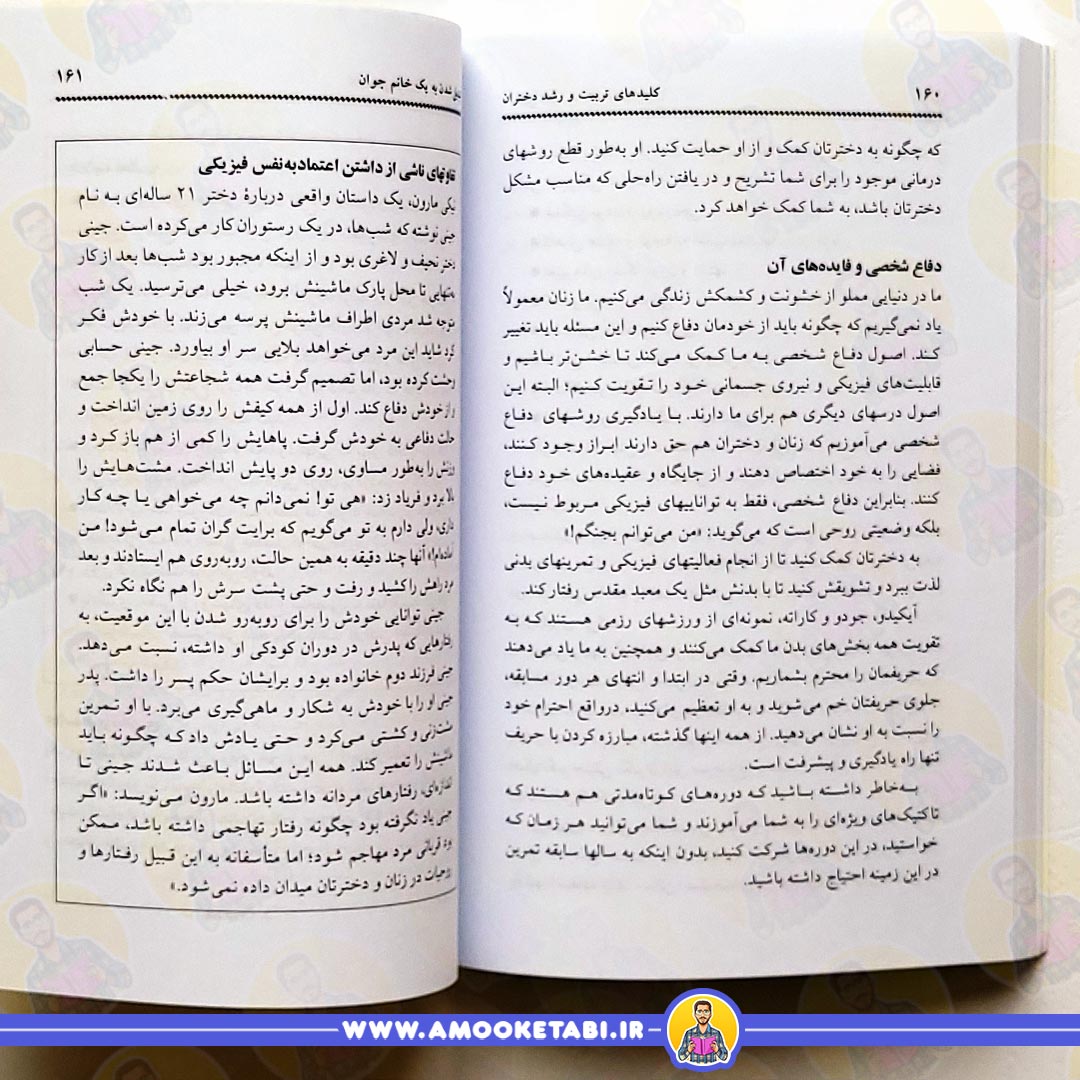 ۱۶۰
کلیدهای تربیت و رشد دختران
که چگونه به دخترتان کمک و از او حمایت کنید. او به‌طور قطع روشهای
درمانی موجود را برای شما تشریح و در یافتن راه‌حلی که مناسب مشکل
دخترتان باشد، به شما کمک خواهد کرد.
دفاع شخصی و فایده‌های آن
ما در دنیایی مملو از خشونت و کشمکش زندگی می‌کنیم. ما زنان معمولاً
یاد نمی‌گیریم که چگونه باید از خودمان دفاع کنیم و این مسئله باید تغییر
کند. اصول دفاع شخصی به ما کمک می‌کند تا خشن‌تر باشیم و
قابلیت‌های فیزیکی و نیروی جسمانی خود را تقویت کنیم؛ البته این
اصول درسهای دیگری هم برای ما دارند. با یادگیری روشهای دفاع
شخصی می‌آموزیم که زنان و دختران هم حق دارند ابراز وجود کنند،
فضایی را به خود اختصاص دهند و از جایگاه و عقیده‌های خود دفاع
کنند. بنابراین دفاع شخصی، فقط به تواناییهای فیزیکی مربوط نیست،
بلکه وضعیتی روحی است که می‌گوید: «من می‌توانم بجنگم!»
به دخترتان کمک کنید تا از انجام فعالیتهای فیزیکی و تمرینهای بدنی
لذت ببرد و تشویقش کنید تا با بدنش مثل یک معبد مقدس رفتار کند.
آیکیدو، جودو و کاراته، نمونه‌ای از ورزشهای رزمی هستند که به
تقویت همه بخش‌های بدن ما کمک می‌کنند و همچنین به ما یاد می‌دهند
که حریفمان را محترم بشماریم. وقتی در ابتدا و انتهای هر دور مسابقه،
جلوی حریفتان خم می‌شوید و به او تعظیم می‌کنید، درواقع احترام خود
را نسبت به او نشان می‌دهید. از همه اینها گذشته، مبارزه کردن با حریف
تنها راه یادگیری و پیشرفت است.
به‌خاطر داشته باشید که دوره‌های کوتاه‌مدتی هم هستند که
تاکتیک‌های ویژه‌ای را به شما می‌آموزند و شما می‌توانید هر زمان که
خواستید، در این دوره‌ها شرکت کنید، بدون اینکه به سالها سابقه تمرین
در این زمینه احتیاج داشته باشید.
شدن به یک خانم جوان
۱۶۱
تفاوتهای ناشی از داشتن اعتمادبه‌نفس فیزیکی
نیکی مارون، یک داستان واقعی دربارهٔ دختر ۲۱ ساله‌ای به نام
جینی نوشته که شب‌ها، در یک رستوران کار می‌کرده است. جینی
دختر نحیف و لاغری بود و از اینکه مجبور بود شب‌ها بعد از کار
به‌تنهایی تا محل پارک ماشینش برود، خیلی می‌ترسید. یک شب
متوجه شد مردی اطراف ماشینش پرسه می‌زند. با خودش فکر
کرد شاید این مرد می‌خواهد بلایی سر او بیاورد. جینی حسابی
وحشت کرده بود، اما تصمیم گرفت همه شجاعتش را یکجا جمع
و از خودش دفاع کند. اول از همه کیفش را روی زمین انداخت و
حالت دفاعی به خودش گرفت. پاهایش را کمی از هم باز کرد و
وزنش را به‌طور مساوی، روی دو پایش انداخت. مشت‌هایش را
بالا برد و فریاد زد: «هی تو! نمی‌دانم چه می‌خواهی یا چه کار
داری، ولی دارم به تو می‌گویم که برایت گران تمام می‌شود! من
آماده‌ام!» آنها چند دقیقه به همین حالت، روبه‌روی هم ایستادند و بعد
مرد راهش را کشید و رفت و حتی پشت سرش را هم نگاه نکرد.
جینی توانایی خودش را برای روبه‌رو شدن با این موقعیت، به
رفتارهایی که پدرش در دوران کودکی او داشته، نسبت می‌دهد.
جینی فرزند دوم خانواده بود و برایشان حکم پسر را داشت. پدر
جینی او را با خودش به شکار و ماهی‌گیری می‌برد. با او تمرین
مشت‌زنی و کشتی می‌کرد و حتی یادش داد که چگونه باید
ماشینش را تعمیر کند. همه این مسائل باعث شدند جینی تا
اندازه‌ای، رفتارهای مردانه داشته باشد. مارون می‌نویسد: «اگر
جینی یاد نگرفته بود چگونه رفتار تهاجمی داشته باشد، ممکن
بود قربانی مرد مهاجم شود؛ اما متأسفانه به این قبیل رفتارها و
روحیات در زنان و دخترتان میدان داده نمی‌شود.»
WWW.AMOOKETABI.IR